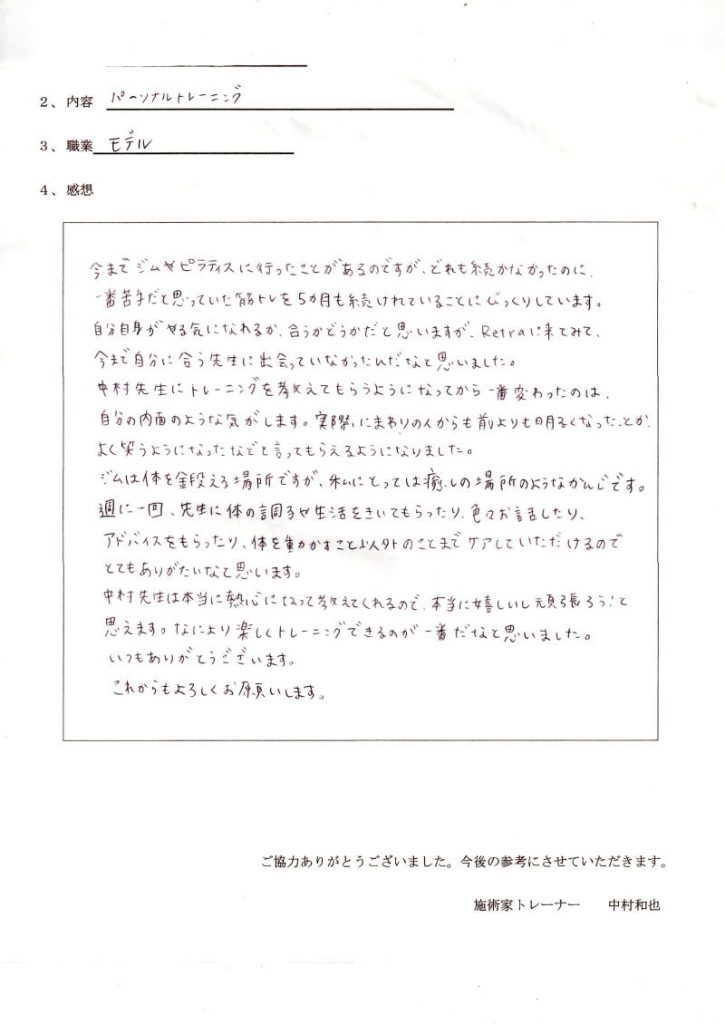 2、内容 パーソナルトレーニング
3、職業 モデル
4、感想
今までジムやピラティスに行ったことがあるのですが、どれも続かなかったのに、
一番苦手だと思っていた筋トレを5ヵ月も続けれていることにびっくりしています。
自分自身がやる気になれるか、合うかどうかだと思いますが、Retraに来てみて、
今まで自分に合う先生に出会っていなかったんだなと思いました。
中村先生にトレーニングを教えてもらうようになってから一番変わったのは、
自分の内面のような気がします。実際にまわりの人からも前よりも明るくなったとか、
よく笑うようになったなどと言ってもらえるようになりました。
ジムは体を鍛える場所ですが、私にとっては癒しの場所のようなかんじです。
週に一回、先生に体の調子や生活をきいてもらったり、色々お話したり、
アドバイスをもらったり、体を動かすこと以外のことまでケアしていただけるので
とてもありがたいなと思います。
中村先生は本当に熱心になって教えてくれるので、本当に嬉しいし頑張ろう!と
思えます。なにより楽しくトレーニングできるのが一番だなと思いました。
いつもありがとうございます。
これからもよろしくお願いします。
ご協力ありがとうございました。今後の参考にさせていただきます。
施術家トレーナー 中村和也